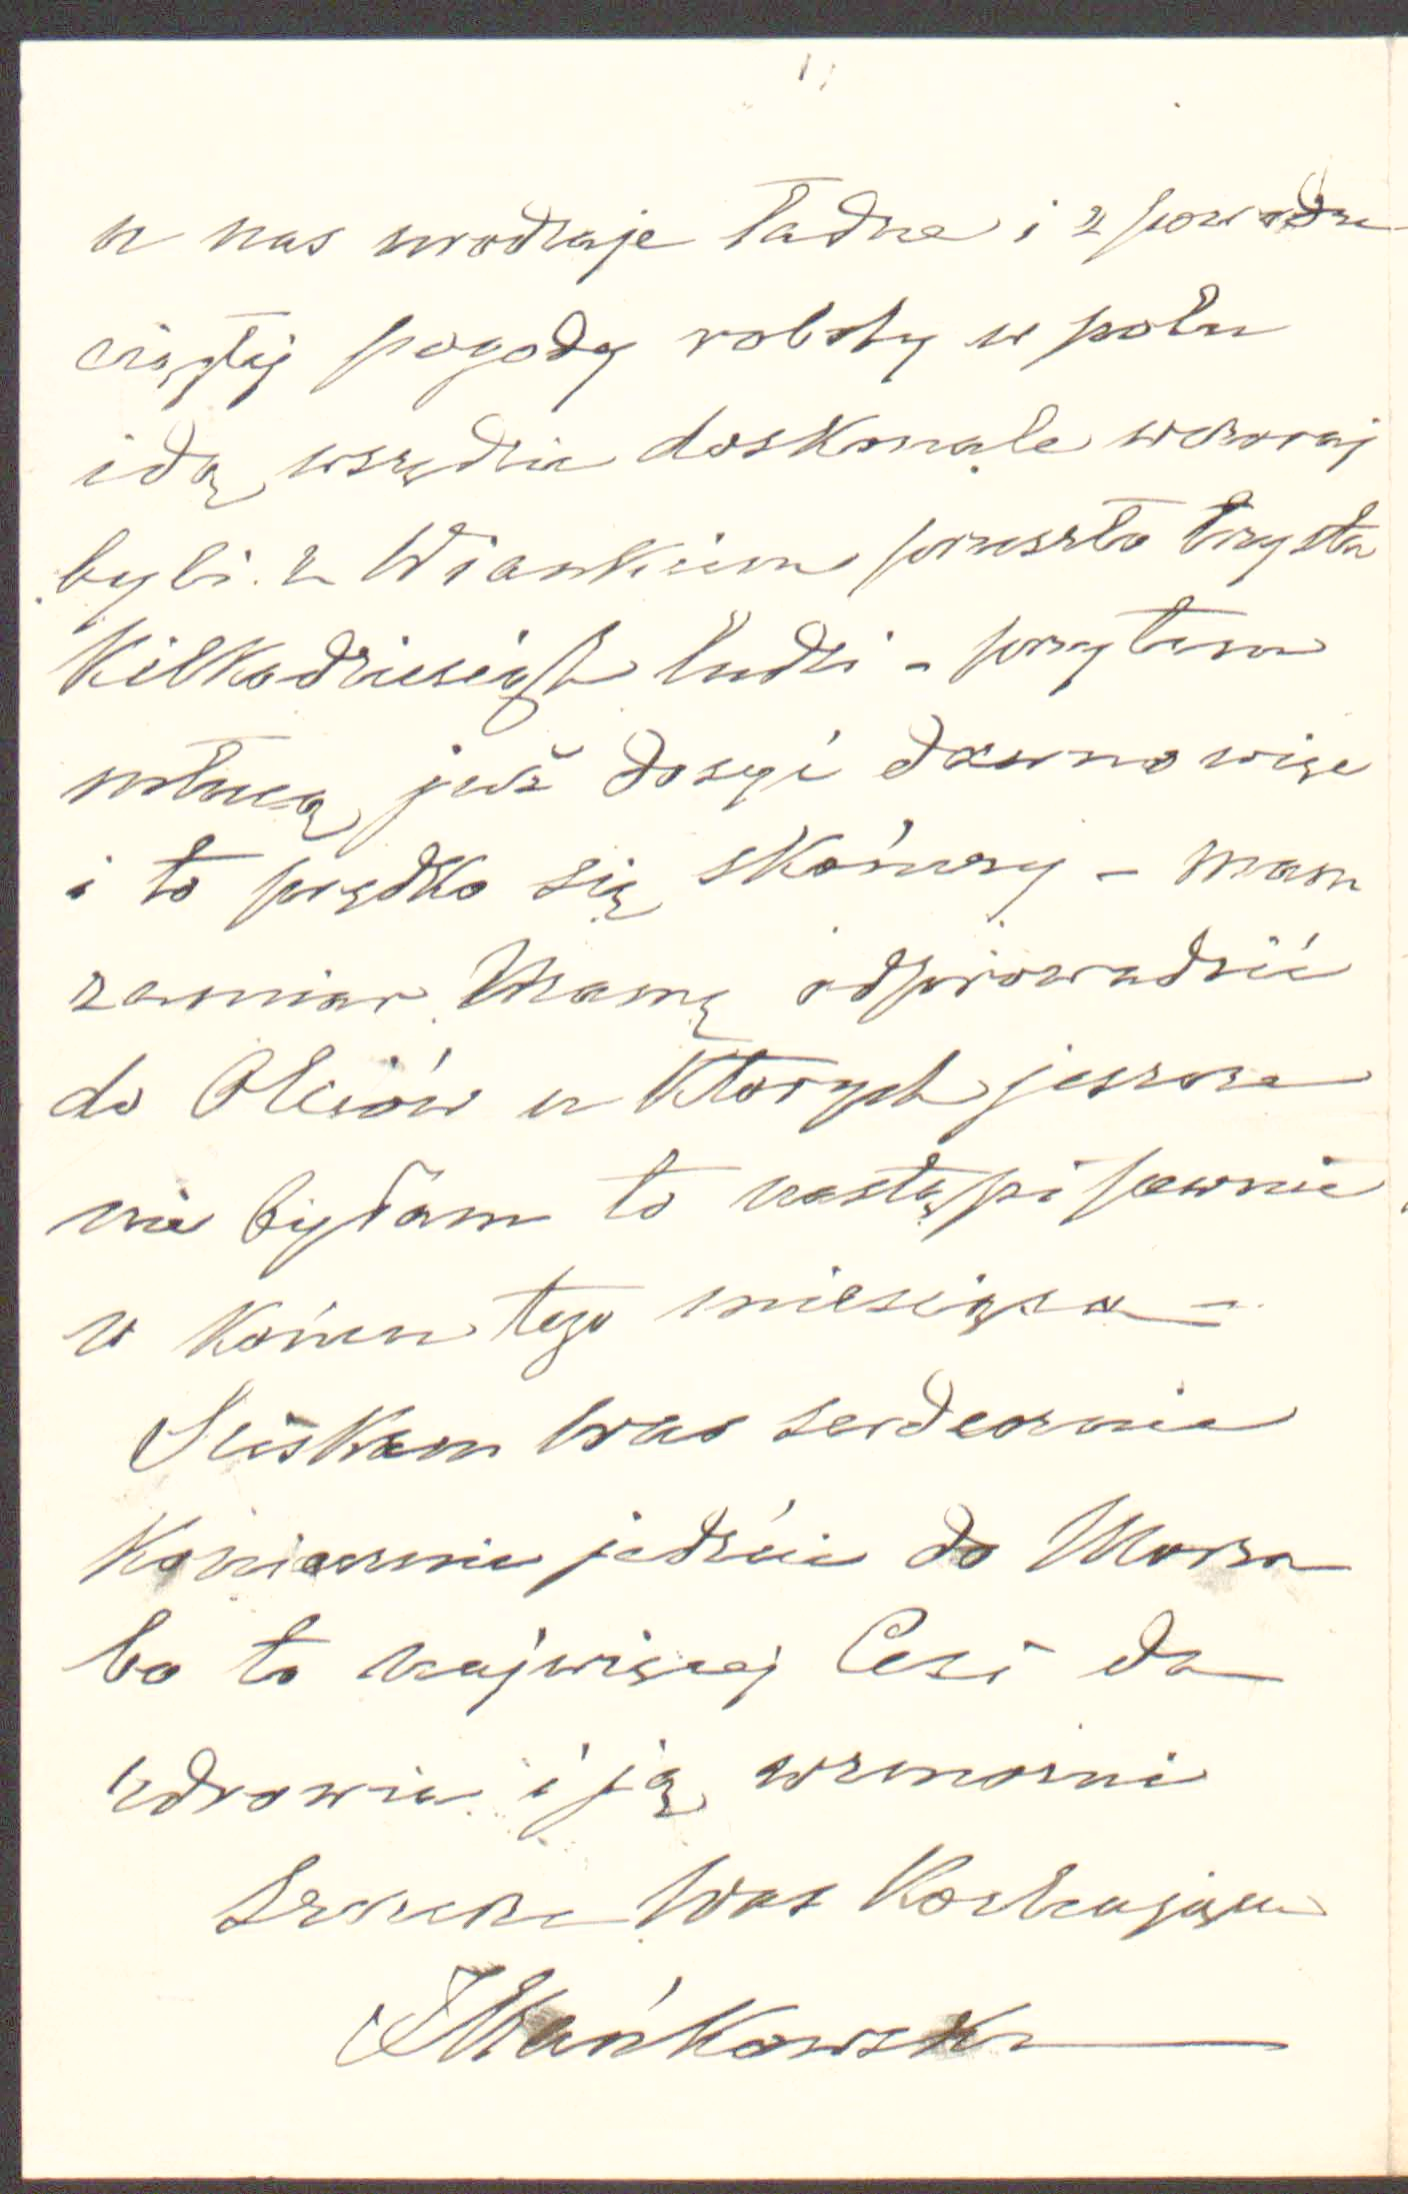 u nas urodzaje ładne i z powodu
ciągłej pogody roboty w polu
idą wszędzie doskonale wczoraj
byli z Wiankiem przeszło trzystu
kilkadziesiąt ludzi – przytem
młucą już dosyć dawno więc
i to prędko się skończy – mam
zamiar Mamę odprowadzić
do Olesiów u ktorych jeszcze
nie byłam to nastąpi pewnie
w końcu tego miesiąca –
Sciskam Was serdecznie
koniecznie jedźcie do Morza
bo to najwięcej Cesi da
zdrowia i ją wzmocni
Szczerze Was Kochająca
Mańkowska